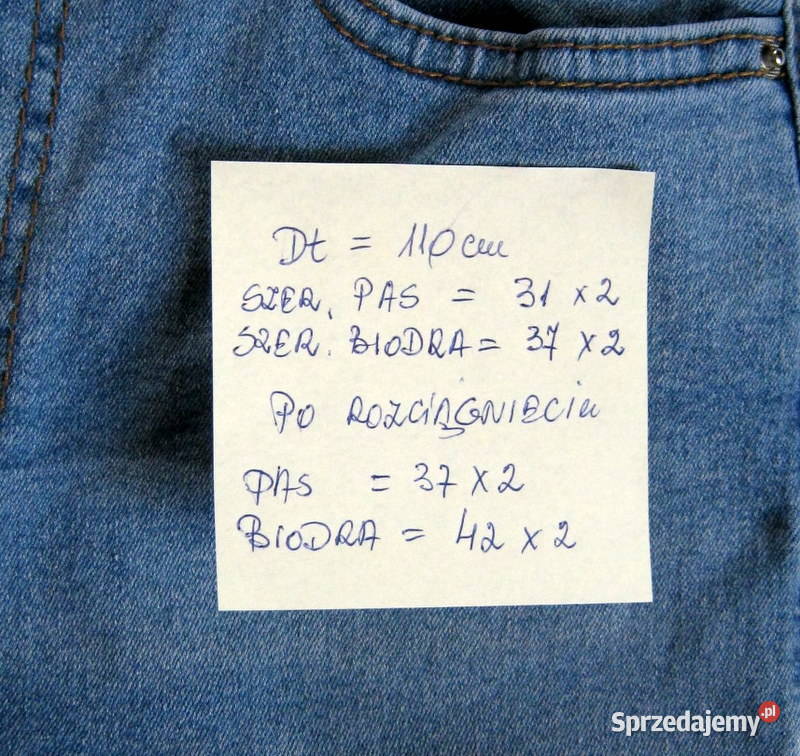 Dt = 110 cm
SZER. PAS = 31 x 2
SZER. BIODRA = 37 x 2
PO ROZCIĄGNIĘCIU
PAS = 37 x 2
BIODRA = 42 x 2
Sprzedajemy.pl